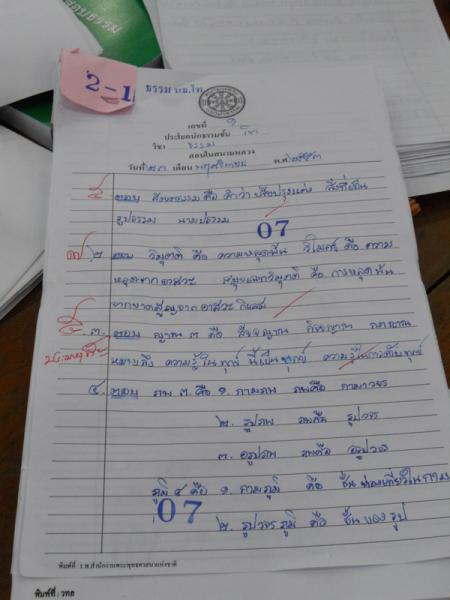 สอบธรรม
2-1 ธรรม นธ.โท
เลขที่
ประโยคนักธรรมชั้น โท
วิชา ธรรม
สอบในสนามหลวง
วันที่ เดือน พฤศจิกายน พ.ศ.
ตอบ สังขตธรรม คือ สิ่งที่เป็น
รูปธรรม นามธรรม
07
๒ ตอบ วิมุตติ คือ ความหลุดพ้น วิโมกข์ คือ ความ
หลุดจากอาสวะ สมุจเฉทวิมุตติ คือ การหลุดพ้น
อาสวะกิเลส
๓. ตอบ ญาณ ๓ คือ สัจจญาณ กิจจญาณ กตญาณ
หมายถึง ความรู้ใน ทุกข์ นี้เป็นทุกข์ ความรู้ใน ทุกข์
๔. ตอบ ภพ ๓ คือ ๑. กามภพ ภพคือ กามาวจร
๒. รูปภพ ภพคือ รูปวจร
๓. อรูปภพ ภพคือ อรูปวจร
ภูมิ ๔ คือ ๑. กามภูมิ คือ ชั้นท่องเที่ยวในกาม
07 ๒. รูปวจรภูมิ คือ ชั้นของรูป
พิมพ์ที่ ร.พ.สำนักงานพระพุทธศาสนาแห่งชาติ
พิมพ์ที่ : วทล